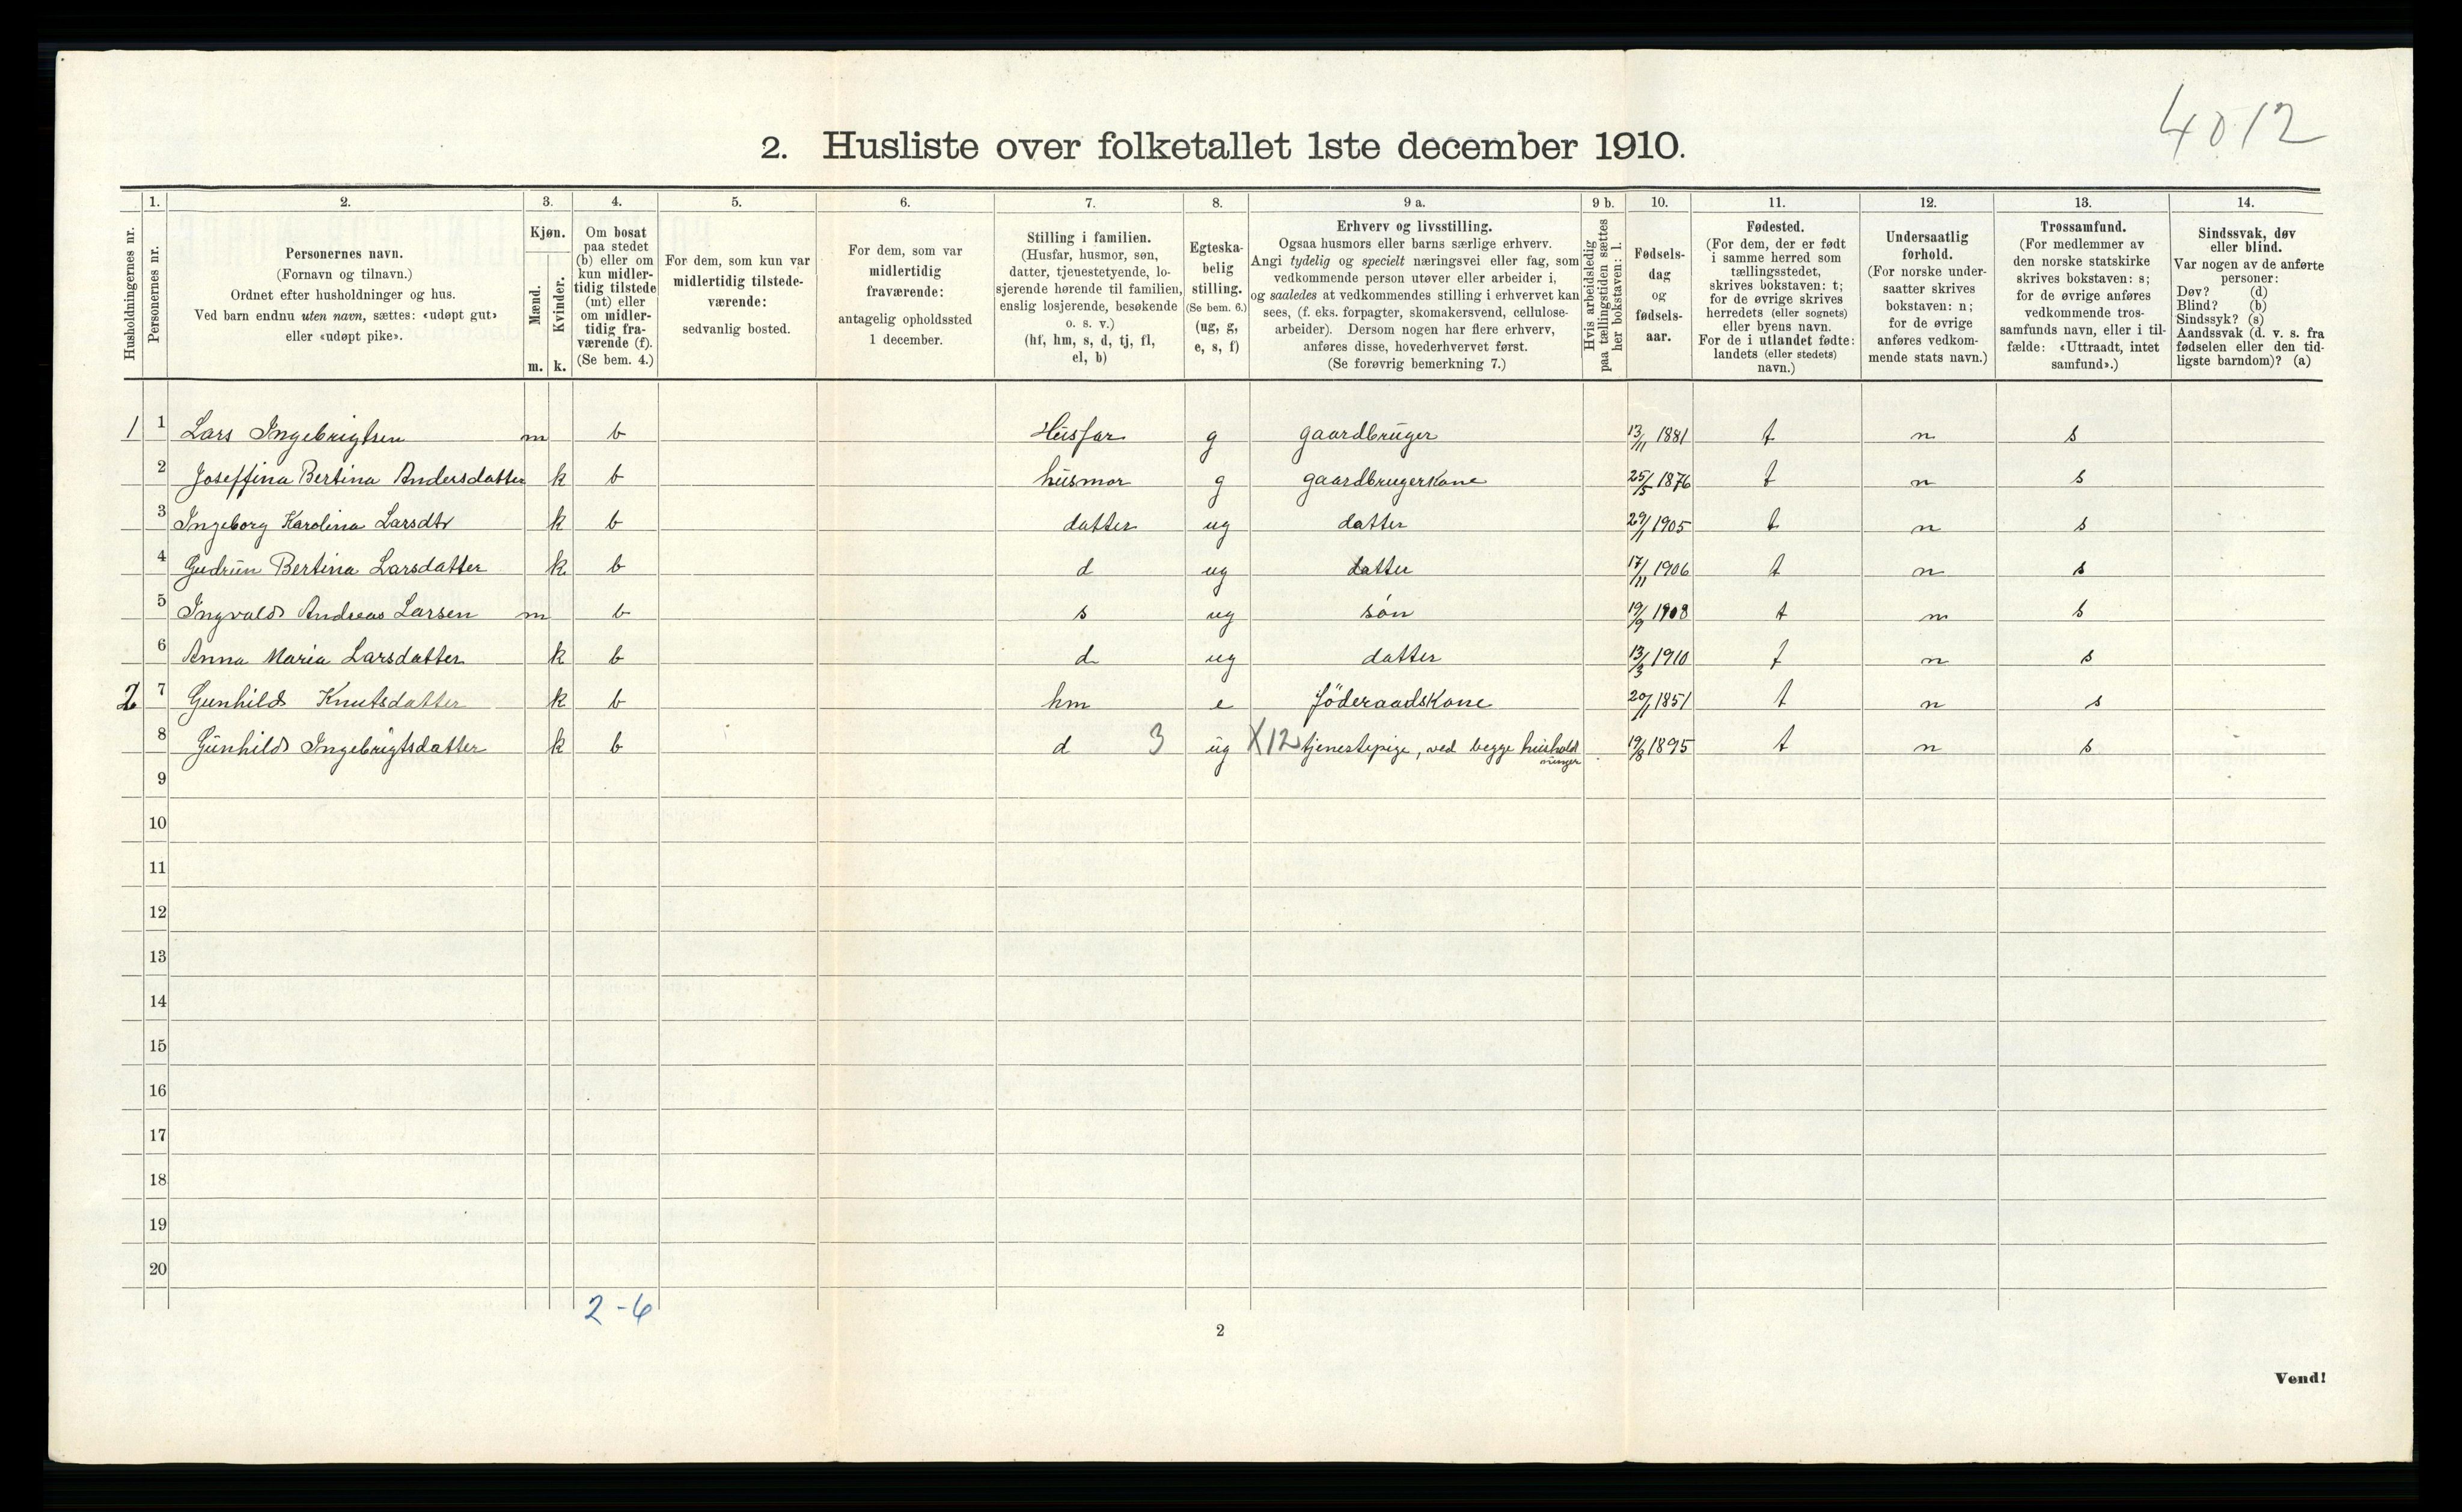 4012
2. Husliste over folketallet 1ste december 1910.
Husholdningernes nr.
1.
Personernes nr.
2.
Personernes navn.
(Fornavn og tilnavn.)
Ordnet efter husholdninger og hus.
Ved barn endnu uten navn, sættes: «udøpt gut»
eller «udøpt pike».
3.
Kjøn.
Mænd.
Kvinder.
m. k.
4.
Om bosat
paa stedet
(b) eller om
kun midler-
tidig tilstede
(mt) eller
om midler-
tidig fra-
værende (f).
(Se bem. 4.)
5.
For dem, som kun var
midlertidig tilstede-
værende:
sedvanlig bosted.
6.
For dem, som var
midlertidig
fraværende:
antagelig opholdssted
1 december.
7.
Stilling i familien.
(Husfar, husmor, søn,
datter, tjenestetyende, lo-
sjerende hørende til familien,
enslig losjerende, besøkende
o. s. v.)
(hf, hm, s, d, tj, fl,
el, b)
8.
Egteska-
belig
stilling.
(Se bem. 6.)
(ug, g,
e, s, f)
9 a.
Erhverv og livsstilling.
Ogsaa husmors eller barns særlige erhverv.
Angi tydelig og specielt næringsvei eller fag, som
vedkommende person utøver eller arbeider i,
og saaledes at vedkommendes stilling i erhvervet kan
sees, (f. eks. forpagter, skomakersvend, cellulose-
arbeider). Dersom nogen har flere erhverv,
anføres disse, hovederhvervet først.
(Se forøvrig bemerkning 7.)
9 b.
Hvis arbeidsledig
paa tællingstiden sættes
her bokstaven: l.
10.
Fødsels-
dag
og
fødsels-
aar.
11.
Fødested.
(For dem, der er født
i samme herred som
tællingsstedet,
skrives bokstaven: t;
for de øvrige skrives
herredets (eller sognets)
eller byens navn.
For de i utlandet fødte:
landets (eller stedets)
navn.)
12.
Undersaatlig
forhold.
(For norske under-
saatter skrives
bokstaven: n;
for de øvrige
anføres vedkom-
mende stats navn.)
13.
Trossamfund.
(For medlemmer av
den norske statskirke
skrives bokstaven: s;
for de øvrige anføres
vedkommende tros-
samfunds navn, eller i til-
fælde: «Uttraadt, intet
samfund».)
14.
Sindssvak, døv
eller blind.
Var nogen av de anførte
personer:
Døv? (d)
Blind? (b)
Sindssyk? (s)
Aandssvak (d. v. s. fra
fødselen eller den tid-
ligste barndom)? (a)
1 1 Lars Ingebrigtsen m b Husfar g gaardbruger 13/11 1881 t n s
2 Joseffina Bertina Andersdatter k b husmor g gaardbrugerkone 25/5 1876 t n s
3 Ingeborg Karolina Larsdtr k b datter ug datter 29/1 1905 t n s
4 Gudrun Bertina Larsdatter k b d ug datter 17/11 1906 t n s
5 Ingvald Andreas Larsen m b s ug søn 19/9 1908 t n s
6 Anna Maria Larsdatter k b d ug datter 13/3 1910 t n s
2 7 Gunhild Knutsdatter k b hm e föderaadskone 20/11 1851 t n s
8 Gunhild Ingebrigtsdatter k b d 3 ug X12 tjenestepige, ved begge hushold
ninger 19/8 1895 t n s
9
10
11
12
13
14
15
16
17
18
19
20
2-6
2
Vend!